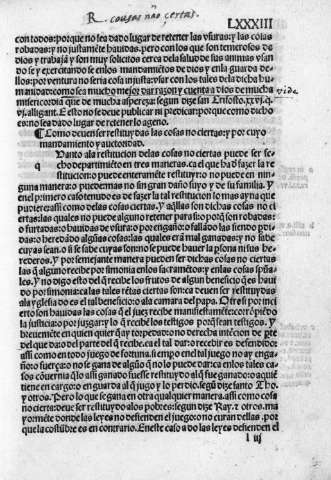 R. cousas nao certas.
LXXXIII
con todos: porque no sea dado lugar de retener las vsuras: y las cosas
robadas: y no justamēte hauidas. pero con los que son temerosos de
dios y trabajā y son muy solicitos cerca dela salud de sus animas vsan
do se y exercitando se enlos mandamiētos de dios y enla guarda de
llos: por ventura no seria cosa injusta: vsar con los tales dela dicha hu
manidad: como sea mucho mejor dar razon y cuenta a dios de mucha
misericordia que de mucha aspereza: segun dize san
alligant. E esto no se deue publicar ni predicar: porque como dicho
es: no sea dado lugar de retener lo ageno.
vide
Como deuen ser restituydas las cosas no ciertas: y por cuyo
mandamiento y auctoridad.
Quanto ala restitucion delas cosas no ciertas puede ser fe
cho departimēto en tres maneras. ca el que ha d' fazer la re
stitucion: o puede enteramēte restituyr: o no puede en nin-
guna manera: o puede mas no sin gran daño suyo y de su familia. Y
en el primero caso tenudo es de fazer la tal restitucion lo mas ayna que
pudiere: assi como delas cosas ciertas. Y aq̄llas son dichas cosas no ci
ertas: las quales no puede alguno retener para si: o porq̄ son robadas:
o furtadas: o hauidas de vsura: o por engaño: o fallādo las siendo pdi-
das: o heredādo algūas cosas: las quales erā mal ganadas: y no sabe
cuyas sean. o si se sabe cuyas son: no se puede hauer la psona ni sus he-
rederos. Y por semejante manera pueden ser dichas cosas no ciertas
las q̄ alguno recibe por simonia enlos sacramētos: y enlas cosas spūa
les. Y no digo esto del q̄ recibe los frutos de algun beneficio q̄ es haui
do por simonia: ca las tales rētas ciertas son: ca deuen ser restituydas
ala yglesia do es el tal beneficio: o ala camara del papa. Otrosi por inci
erto son hauidas las cosas que el juez recibe manifiestamēte: corrōpiēdo
la justicia: o por jugar: y lo q̄ recibe los testigos porq̄ sean testigos. Y
breuemēte en quien quier que ay torpedad: o no derecha intēcion de pte
del que da: o del parte del q̄ recibe. ca el tal dar: o recebir es defendido:
assi como en todo juego de fortuna. si empo enel tal juego no ay enga-
ño: o fuerça: o no se gana de algūo q̄ no lo puede dar: ca enlos tales ca-
sos couernia q̄ lo assi ganado fuesse restituydo al q̄ fue ganado: o aquiē
tiene en cargo: o en guarda al q̄ jugo y lo perdio. segū dize santo Tho.
y otros. Pero lo que se gana en otra qualquier manera. assi como cosa
no cierta: deue ser restituydo alos pobres: segun dize Ray. z otros. ma
yormēte donde las leyes no defienden el juego: o no curan dellas. por
que la costūbre es en contrario. E neste caso a do las leyes defienden el
l iij